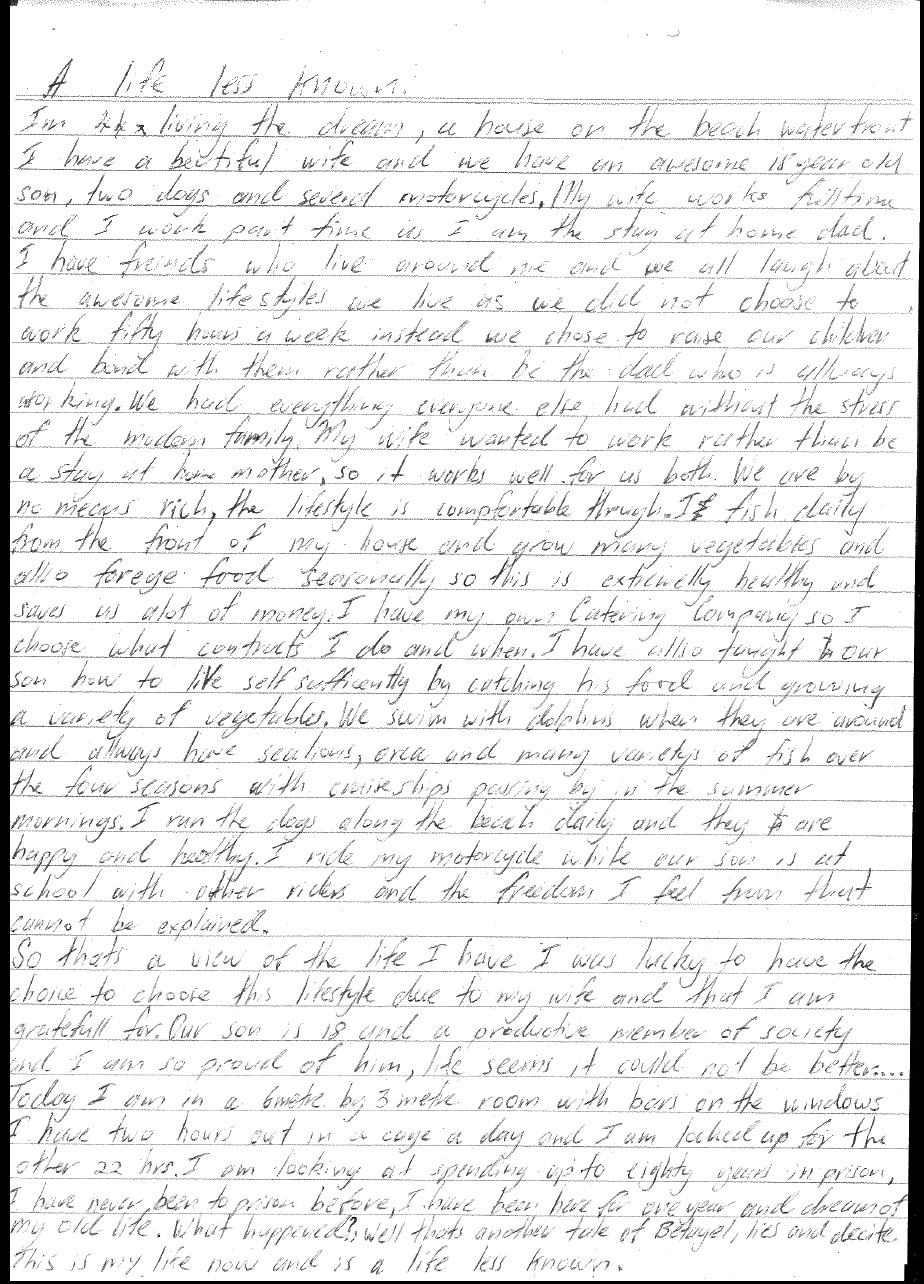 A life less known.
Im living the dream, a house on the beach waterfront
I have a beutiful wife and we have an awesome 18 year old
son, two dogs and several motorcycles. My wife works fulltime
and I work part time as I am the stay at home dad.
I have freinds who live around me and we all laugh about
the awesome lifestyles we live as we did not choose to
work fifty hours a week instead we chose to raise our children
and bond with them rather than be the dad who is allways
working. We had everything everyone else had without the stress
of the modern family. My wife wanted to work rather than be
a stay at home mother, so it works well for us both. We are by
no means rich, the lifestyle is compfortable through. I fish daily
from the front of my house and grow many vegetables and
allso forege food seasonally so this is extremelly healthy and
saves us alot of money. I have my own Catering Company so I
choose what contracts I do and when. I have allso taught our
son how to live self sufficently by catching his food and growing
a variety of vegetables. We swim with dolphins when they are around
and allways have sealions, orca and many varietys of fish over
the four seasons with cruiseships passing by in the summer
mornings. I run the dogs along the beach daily and they are
happy and healthy. I ride my motorcycle while our son is at
school with other riders and the freedom I feel from that
cannot be explained.
So thats a view of the life I have I was lucky to have the
choice to choose this lifestyle due to my wife and that I am
gratefull for. Our son is 18 and a productive member of society
and I am so proud of him, life seems it could not be better....
Today I am in a 6metre by 3 metre room with bars on the windows
I have two hours out in a cage a day and I am locked up for the
other 22 hrs. I am looking at spending upto eighty years in prison,
I have never been to prison before, I have been here for one year and dream of
my old life. What happened?, well thats another tale of Betrayel, lies and decite.
This is my life now and is a life less known.